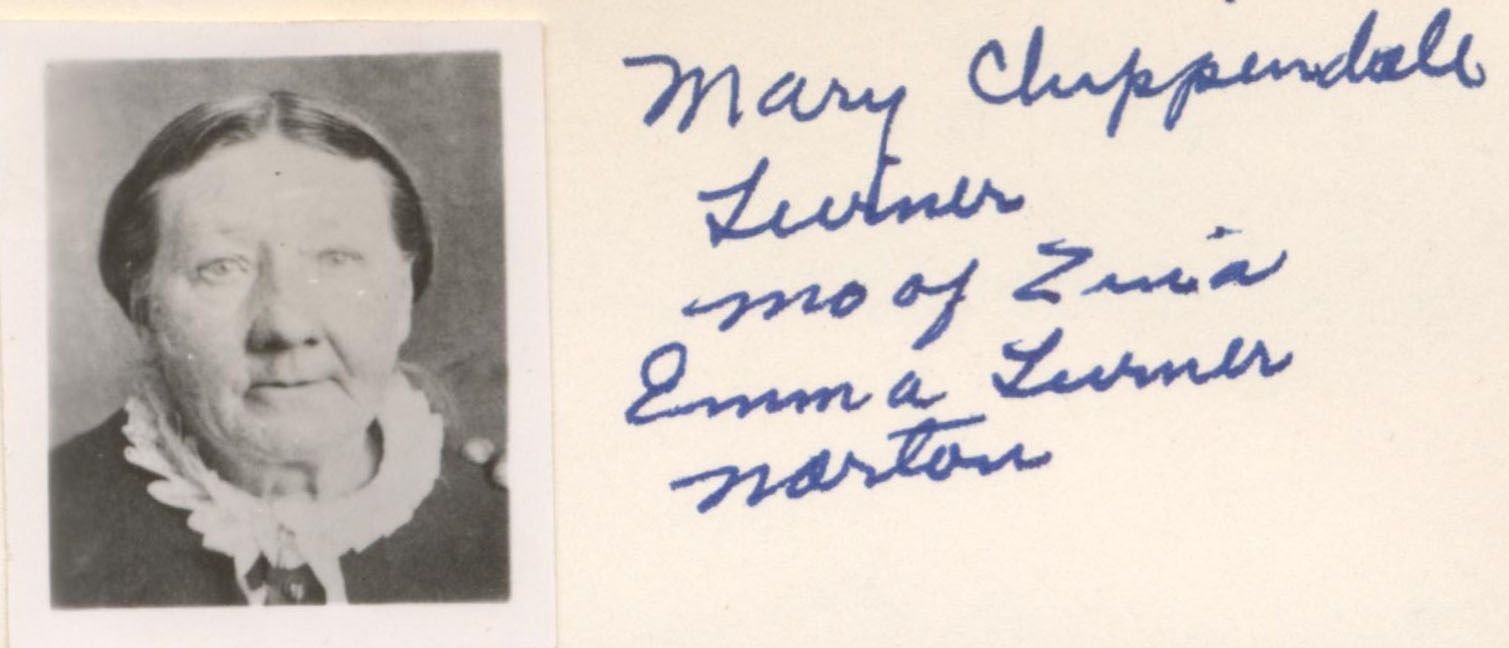 Mary Chippendale
Turner
mo of Zina
Emma Turner
Norton